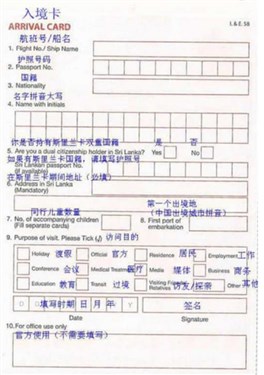 入境卡
ARRIVAL CARD
I. & E. 58
航班号/船名
1. Flight No./ Ship Name
护照号码
2. Passport No.
国籍
3. Nationality
名字拼音大写
4. Name with initials
你是否持有斯里兰卡双重国籍 是 否
5. Are you a dual citizenship holder in Sri Lanka? Yes No
如果有斯里兰卡国籍,请填写护照号
Sri Lankan passport No.
(If available)
在斯里兰卡期间地址(必填)
6. Address in Sri Lanka
(Mandatory)
同行儿童数量
7. No. of accompanying children
(Fill separate cards)
第一个出境地
(中国出境城市拼音)
8. First port of
embarkation
9. Purpose of visit. Please Tick (√) 访问目的
Holiday 渡假 Official 官方 Residence 居民 Employment 工作
Conference 会议 Medical Treatment 医疗 Media 媒体 Business 商务
Education 教育 Transit 过境 Visiting Friends/ Relatives 访友/探亲 Other 其他
填写时期 日 月 年 Y
签名
Date
Signature
10. For office use only
官方使用(不需要填写)